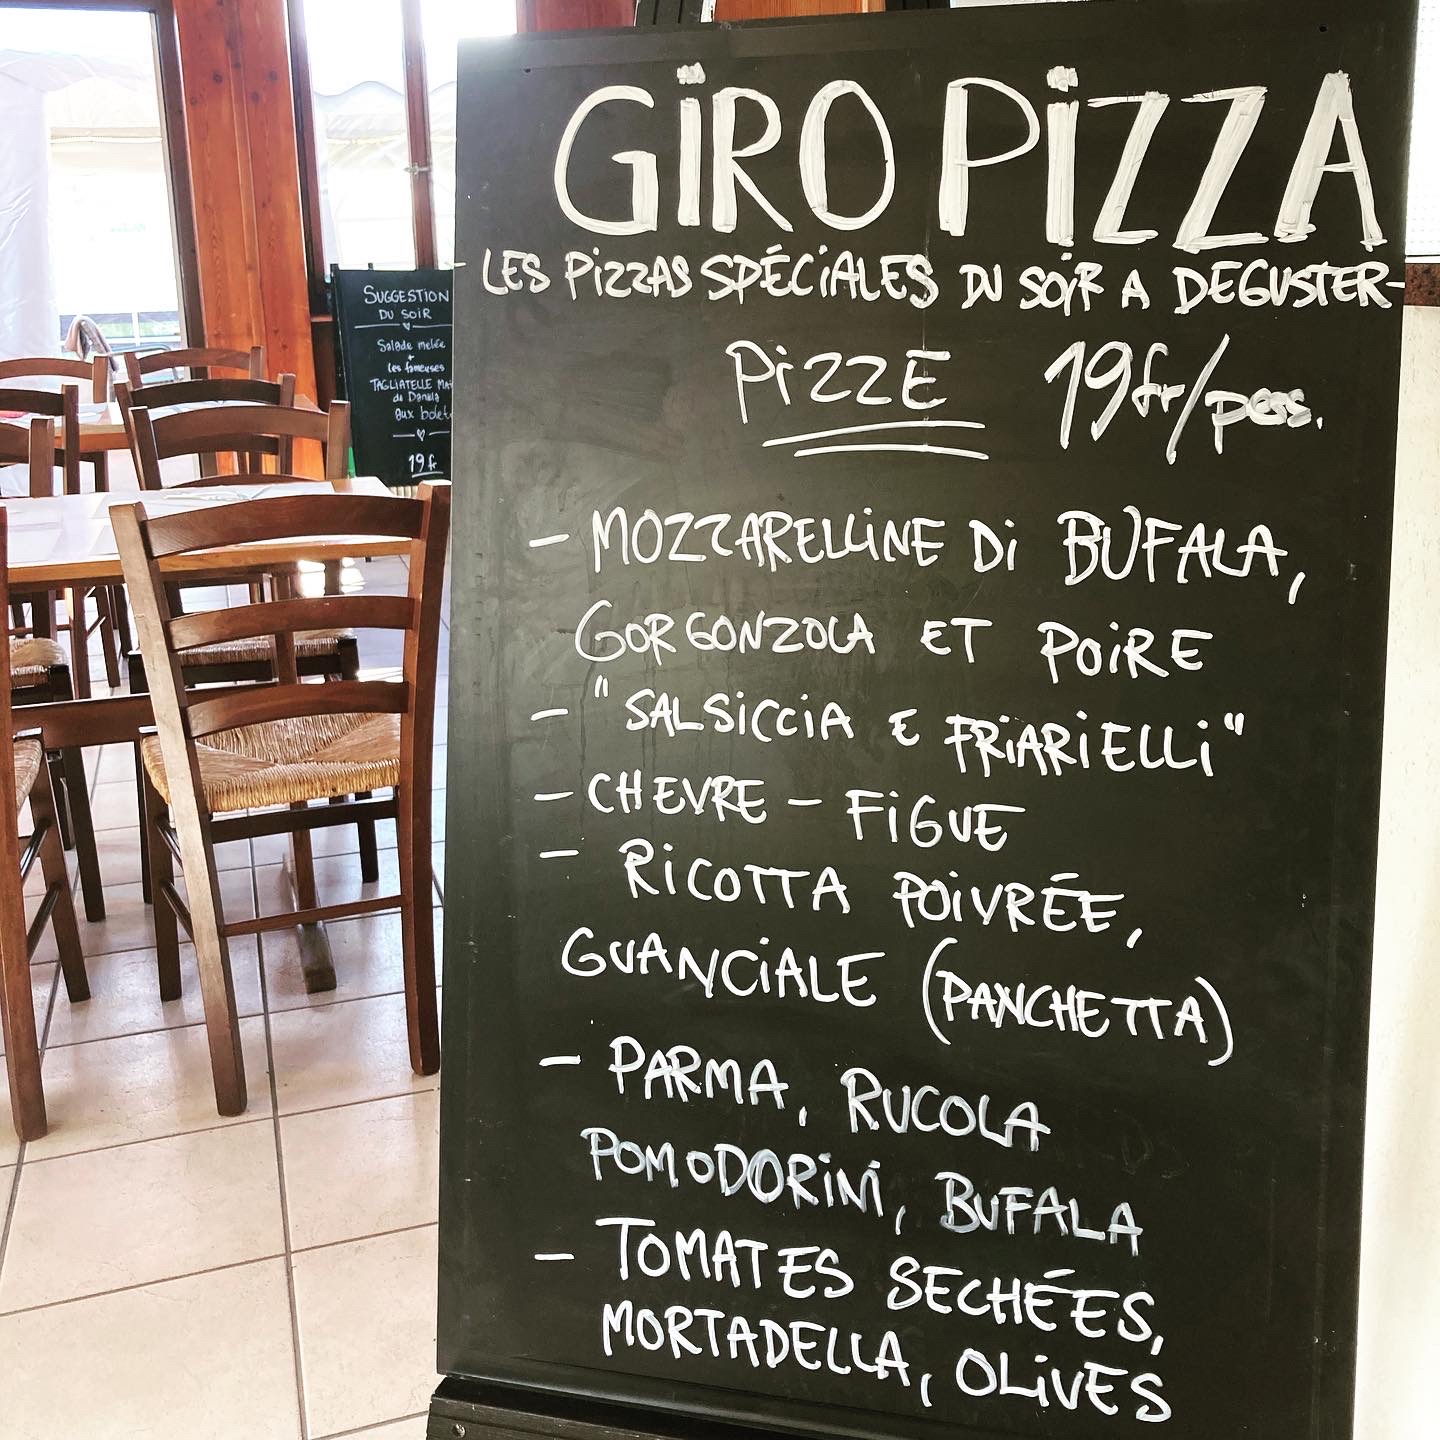 GIRO PIZZA
- LES PIZZAS SPÉCIALES DU SOIR A DEGUSTER -
PIZZE 19fr/pers.
- MOZZARELLINE DI BUFALA,
GORGONZOLA ET POIRE
- "SALSICCIA E FRIARIELLI"
- CHEVRE - FIGUE
- RICOTTA POIVRÉE,
GUANCIALE (PANCHETTA)
- PARMA, RUCOLA
POMODORINI, BUFALA
- TOMATES SECHÉES,
MORTADELLA, OLIVES
SUGGESTION
DU SOIR
Salade melée
+
les fameuses
TAGLIATELLE
de Daniela
aux
19 fr